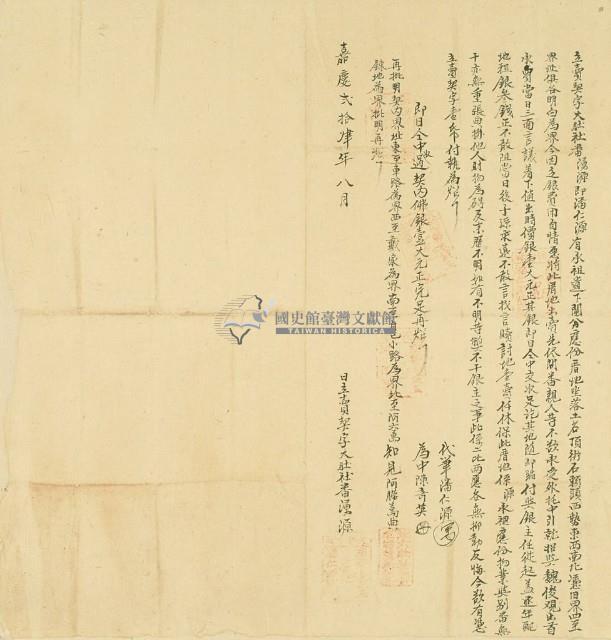 立賣契字大肚社番湧源即潘仁源有承祖遺下鬮分應份厝地坐落土名頂街石頭西勢東西南北憑旧界四至
界址俱各明白為界今因乏銀費用自情愿將此厝地出賣先依問番親人等不欲承受外托中引就招與魏俊觀出首
承買當日三面言議着下值出時價銀壹大元正其銀即日仝中交收足訖其地隨即踏付與銀主任從起蓋逐年配
地租銀叁錢正不敢阻當日後子孫永遠不敢言找言贖討地壹賣仟休保此厝地係源承祖應份物業與別番無
干亦無重張典掛他人財物為碍及來歷不明如有不明等獘不干銀主之事此係二比両愿各無抑勒反悔今欲有憑
立賣契字壹紙付執為炤
即日仝中收過契內佛銀壹大元正完足再炤
代筆潘仁源
為中陳奇英
再批明契內界址東至車路為界西至戴家為界南至小路為界北至阿
地為界批明再炤
知見阿
嘉慶弍拾肆年八月
日立賣契字大肚社番湧源
國史館臺灣文獻館
TAIWAN HISTORICA